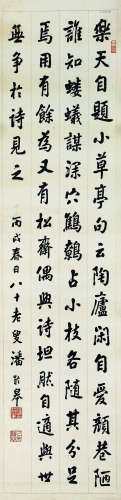 樂天自題小草亭句云陶廬閑自愛顏巷陋
誰知螻蟻謀深穴鷦鷯占小枝各隨其分足
焉用有餘為又有松齋偶興詩坦然自適與世
無爭於詩見之 丙戌春日八十老叟潘齡皋